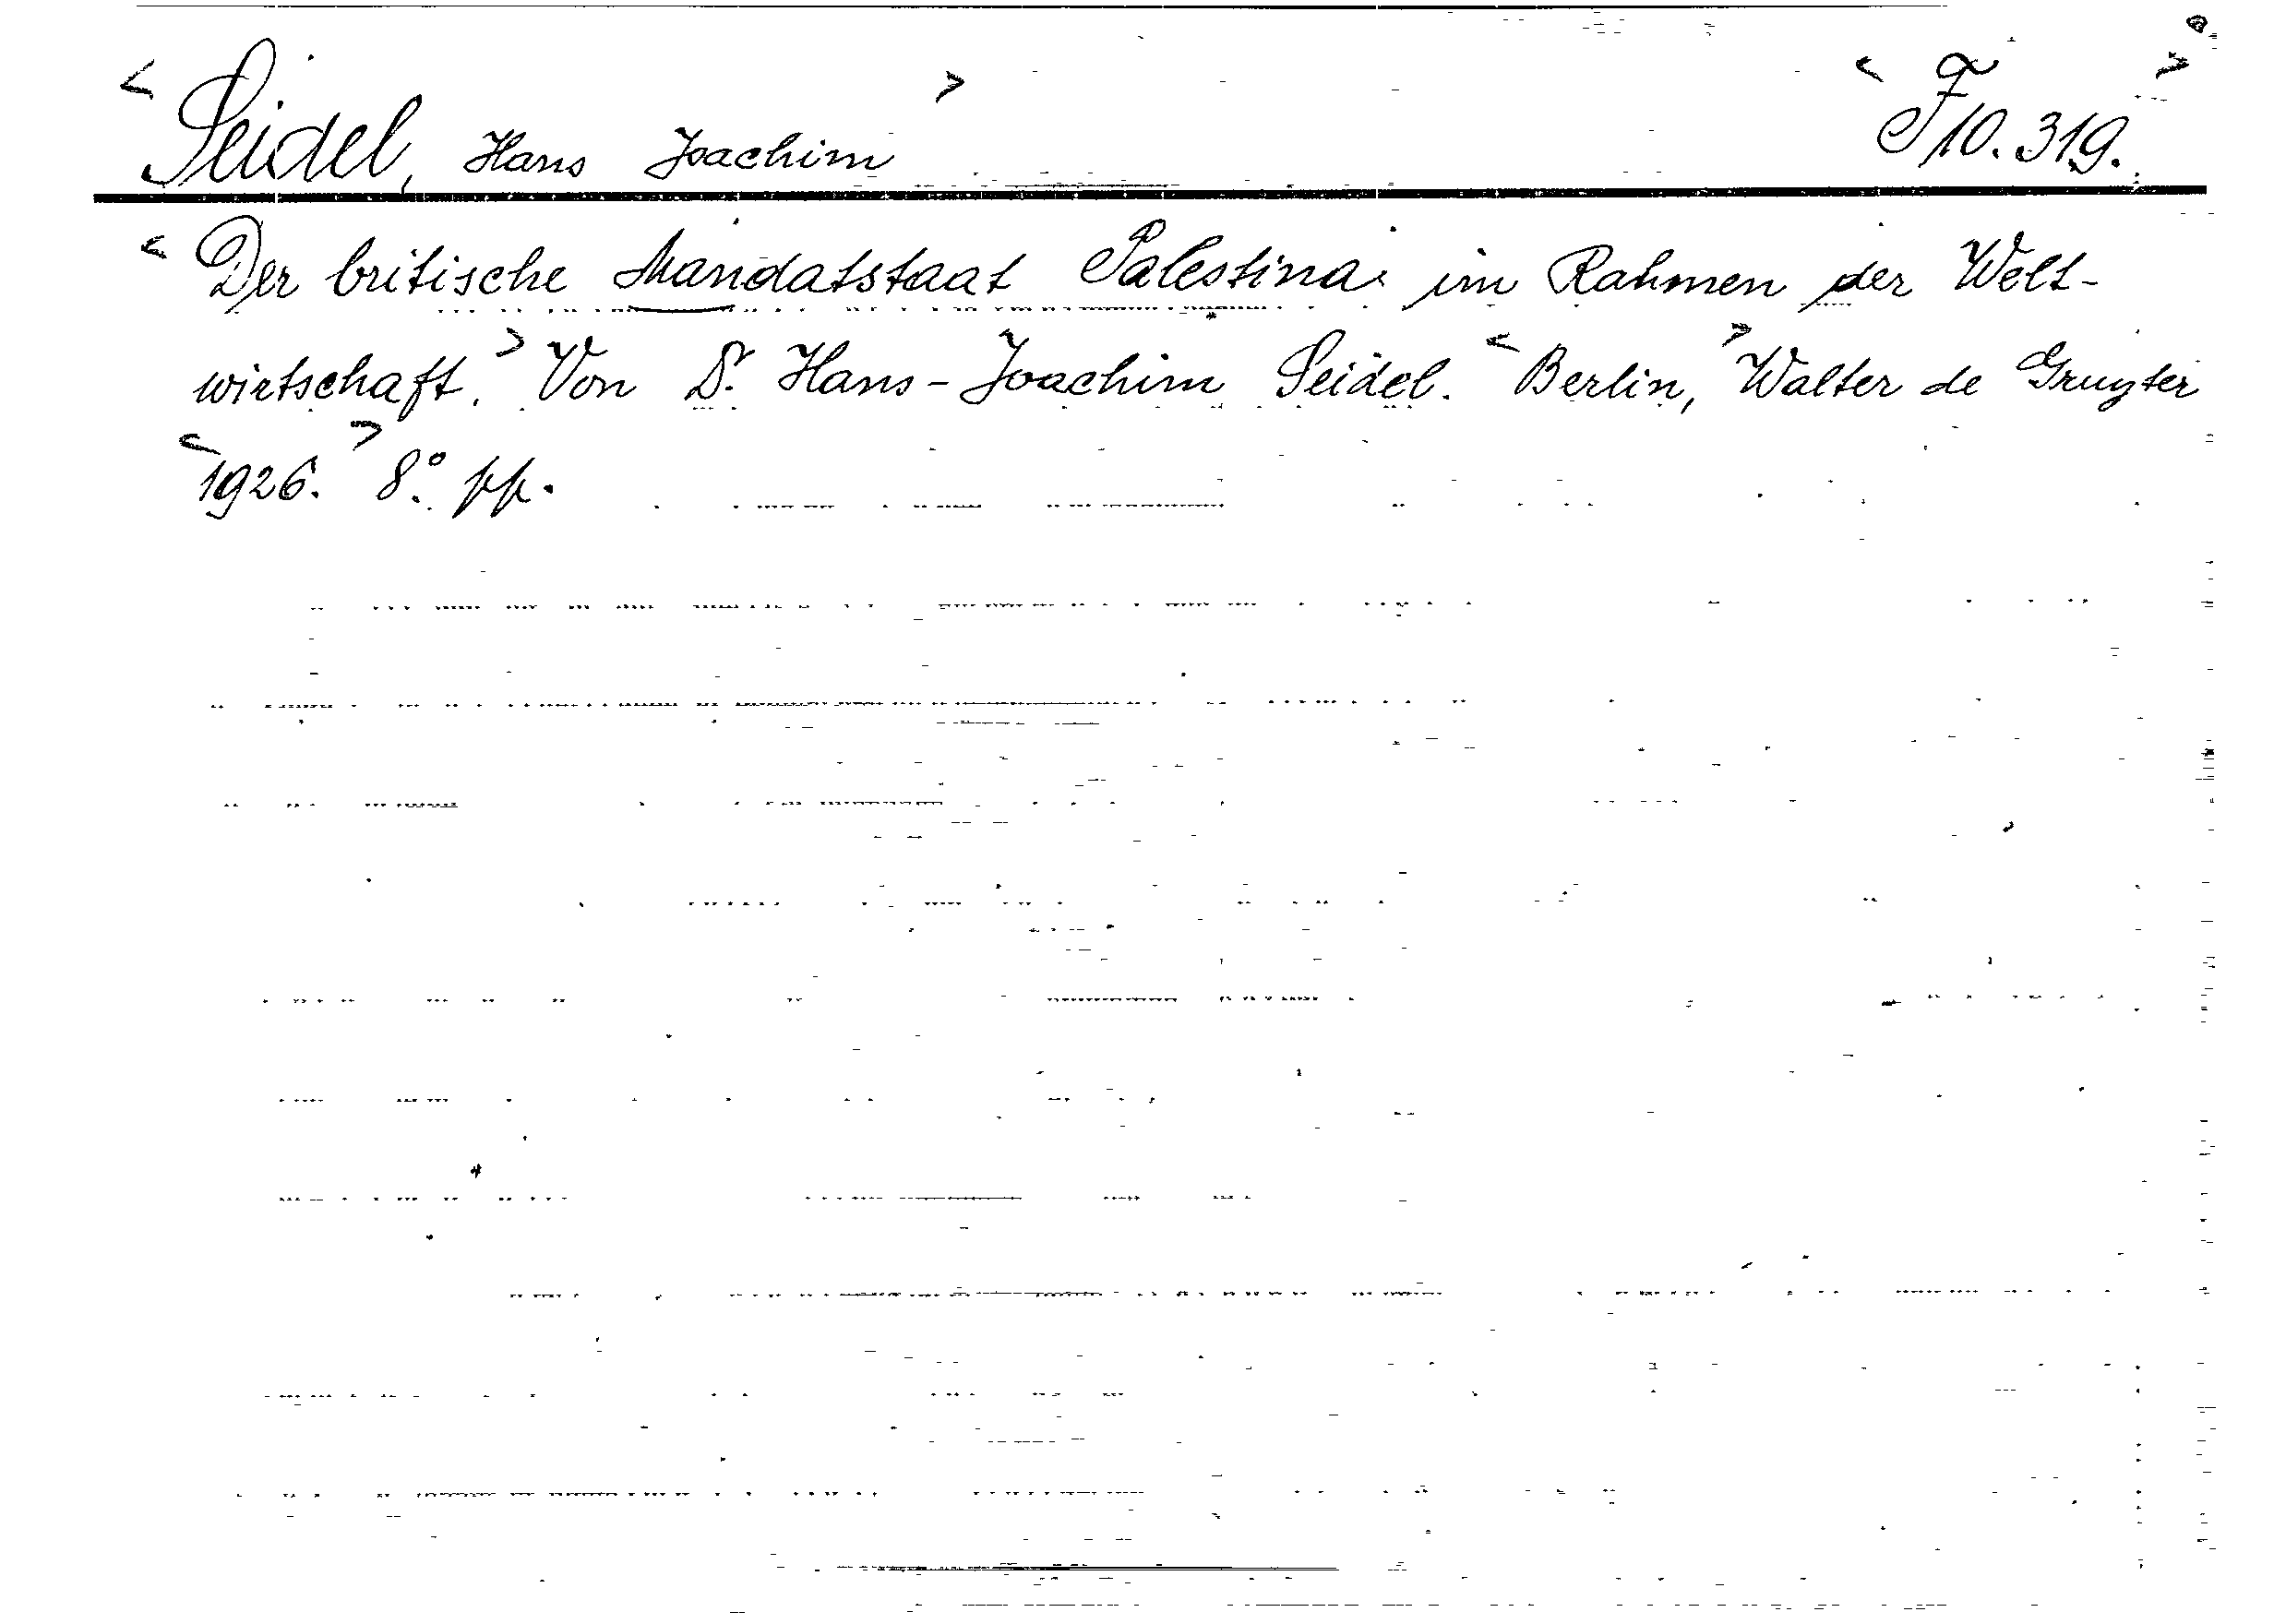 < Seidel, Hans Joachim > < F 10.319. >
< Der britische Mandatstaat Palestina im Rahmen der Welt-
wirtschaft. > Von Dr. Hans-Joachim Seidel. < Berlin, > Walter de Gruyter
< 1926. > 8°. pp.